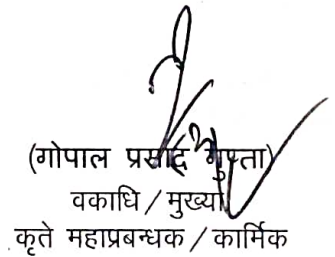 (गोपाल प्रसाद गुप्ता)
वकाधि / मुख्या
कृते महाप्रबन्धक / कार्मिक